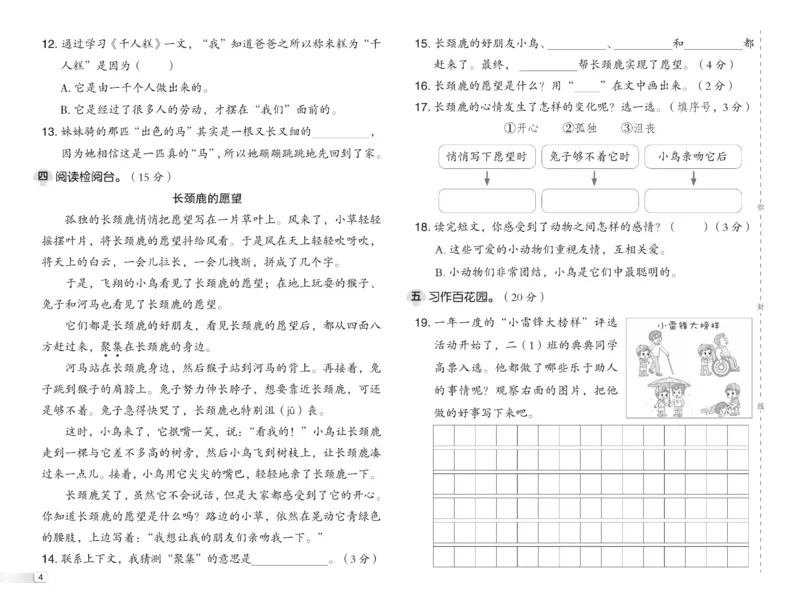 12. 通过学习《千人糕》一文，“我”知道爸爸之所以称米糕为“千
人糕”是因为（　　）
A. 它是由一千个人做出来的。
B. 它是经过了很多人的劳动，才摆在“我们”面前的。
13. 妹妹骑的那匹“出色的马”其实是一根又长又细的__________，
因为她相信这是一匹真的“马”，所以她蹦蹦跳跳地先回到了家。
四 阅读检阅台。（15 分）
长颈鹿的愿望
孤独的长颈鹿悄悄把愿望写在一片草叶上。风来了，小草轻轻
摇摆叶片，将长颈鹿的愿望抖给风看。于是风在天上轻轻吹呀吹，
将天上的白云，一会儿拉长，一会儿拽断，拼成了几个字。
于是，飞翔的小鸟看见了长颈鹿的愿望；在地上玩耍的猴子、
兔子和河马也看见了长颈鹿的愿望。
它们都是长颈鹿的好朋友，看见长颈鹿的愿望后，都从四面八
方赶过来，聚集在长颈鹿的身边。
河马站在长颈鹿身边，然后猴子站到河马的背上。再接着，兔
子跳到猴子的肩膀上。兔子努力伸长脖子，想要靠近长颈鹿，可还
是够不着。兔子急得快哭了，长颈鹿也特别沮（jǔ）丧。
这时，小鸟来了，它抿嘴一笑，说：“看我的！”小鸟让长颈鹿
走到一棵与它差不多高的树旁，然后小鸟飞到树枝上，让长颈鹿凑
过来一点儿。接着，小鸟用它尖尖的嘴巴，轻轻地亲了长颈鹿一下。
长颈鹿笑了，虽然它不会说话，但是大家都感受到了它的开心。
你知道长颈鹿的愿望是什么吗？路边的小草，依然在晃动它青绿色
的腰肢，上边写着：“我想让我的朋友们亲吻我一下。”
14. 联系上下文，我猜测“聚集”的意思是______________。（3 分）
4
15. 长颈鹿的好朋友小鸟、__________、__________和__________都
赶来了。最终，__________帮长颈鹿实现了愿望。（4 分）
16. 长颈鹿的愿望是什么？用“____”在文中画出来。（2 分）
17. 长颈鹿的心情发生了怎样的变化呢？选一选。（填序号，3 分）
①开心　②孤独　③沮丧
悄悄写下愿望时　兔子够不着它时　小鸟亲吻它后
18. 读完短文，你感受到了动物之间怎样的感情？（　　）（3 分）
A. 这些可爱的小动物们重视友情，互相关爱。
B. 小动物们非常团结，小鸟是它们中最聪明的。
五 习作百花园。（20 分）
19. 一年一度的“小雷锋大榜样”评选
活动开始了，二（1）班的典典同学
高票入选。他都做了哪些乐于助人
的事情呢？观察右面的图片，把他
做的好事写下来吧。
小雷锋大榜样
弥
封
线